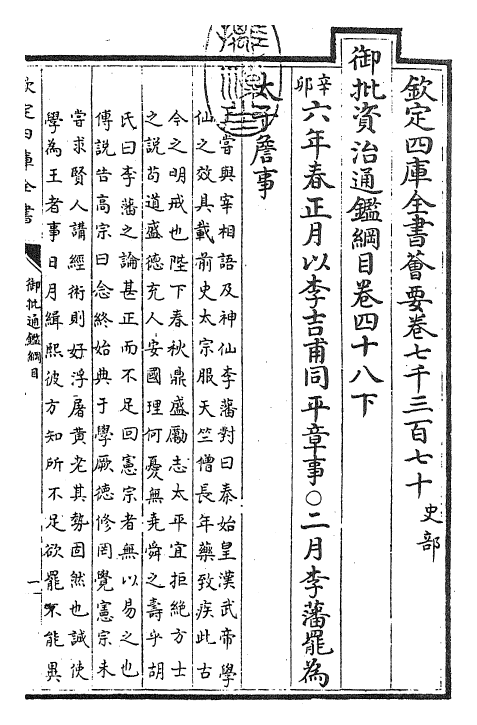 欽定四庫全書薈要卷七千三百七十 史部
御批資治通鑑綱目卷四十八下
辛卯六年春正月以李吉甫同平章事○二月李藩罷為
太子詹事
嘗與宰相語及神仙李藩對曰秦始皇漢武帝學
仙之效具載前史太宗服天竺僧長年藥致疾此古
今之明戒也陛下春秋鼎盛勵志太平宜拒絕方士
之說苟道盛德充人安國理何憂無堯舜之壽乎胡
氏曰李藩之論甚正而不足回憲宗者無以易之也
傳說告高宗曰念終始典于學厥德修罔覺憲宗未
嘗求賢人講經術則好浮屠黃老其勢固然也誠使
學為王者事日月緝熙彼方知所不足欲罷不能異
欽定四庫全書
御批通鑑綱目
一